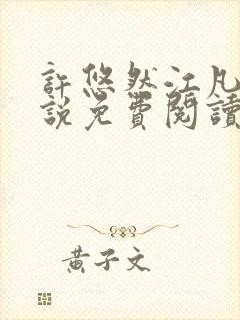 許悠然江凡
說免費閱讀
黃子文